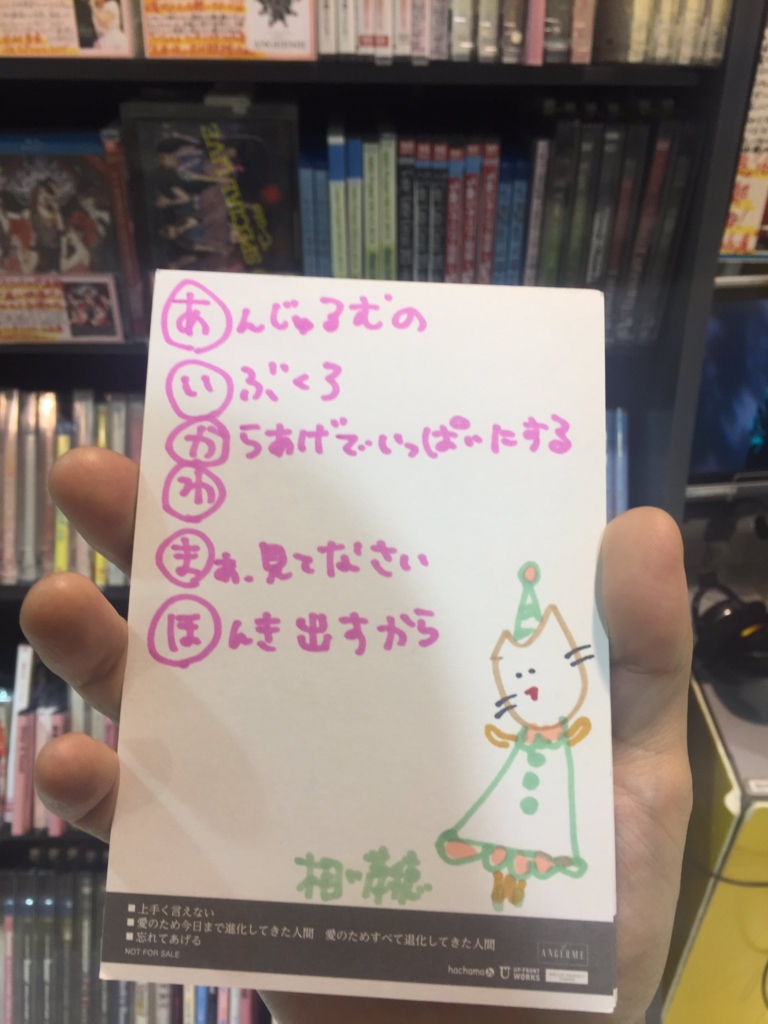 あんじゅるむの
いぶくろ
からあげでいっぱいにする
わ
まぁ、見てなさい
ほんき出すから
相川茉穂
■上手く言えない
■愛のため今日まで進化してきた人間 愛のためすべて退化してきた人間
■忘れてあげる
NOT FOR SALE
ANGERME
hachama
UP-FRONT WORKS